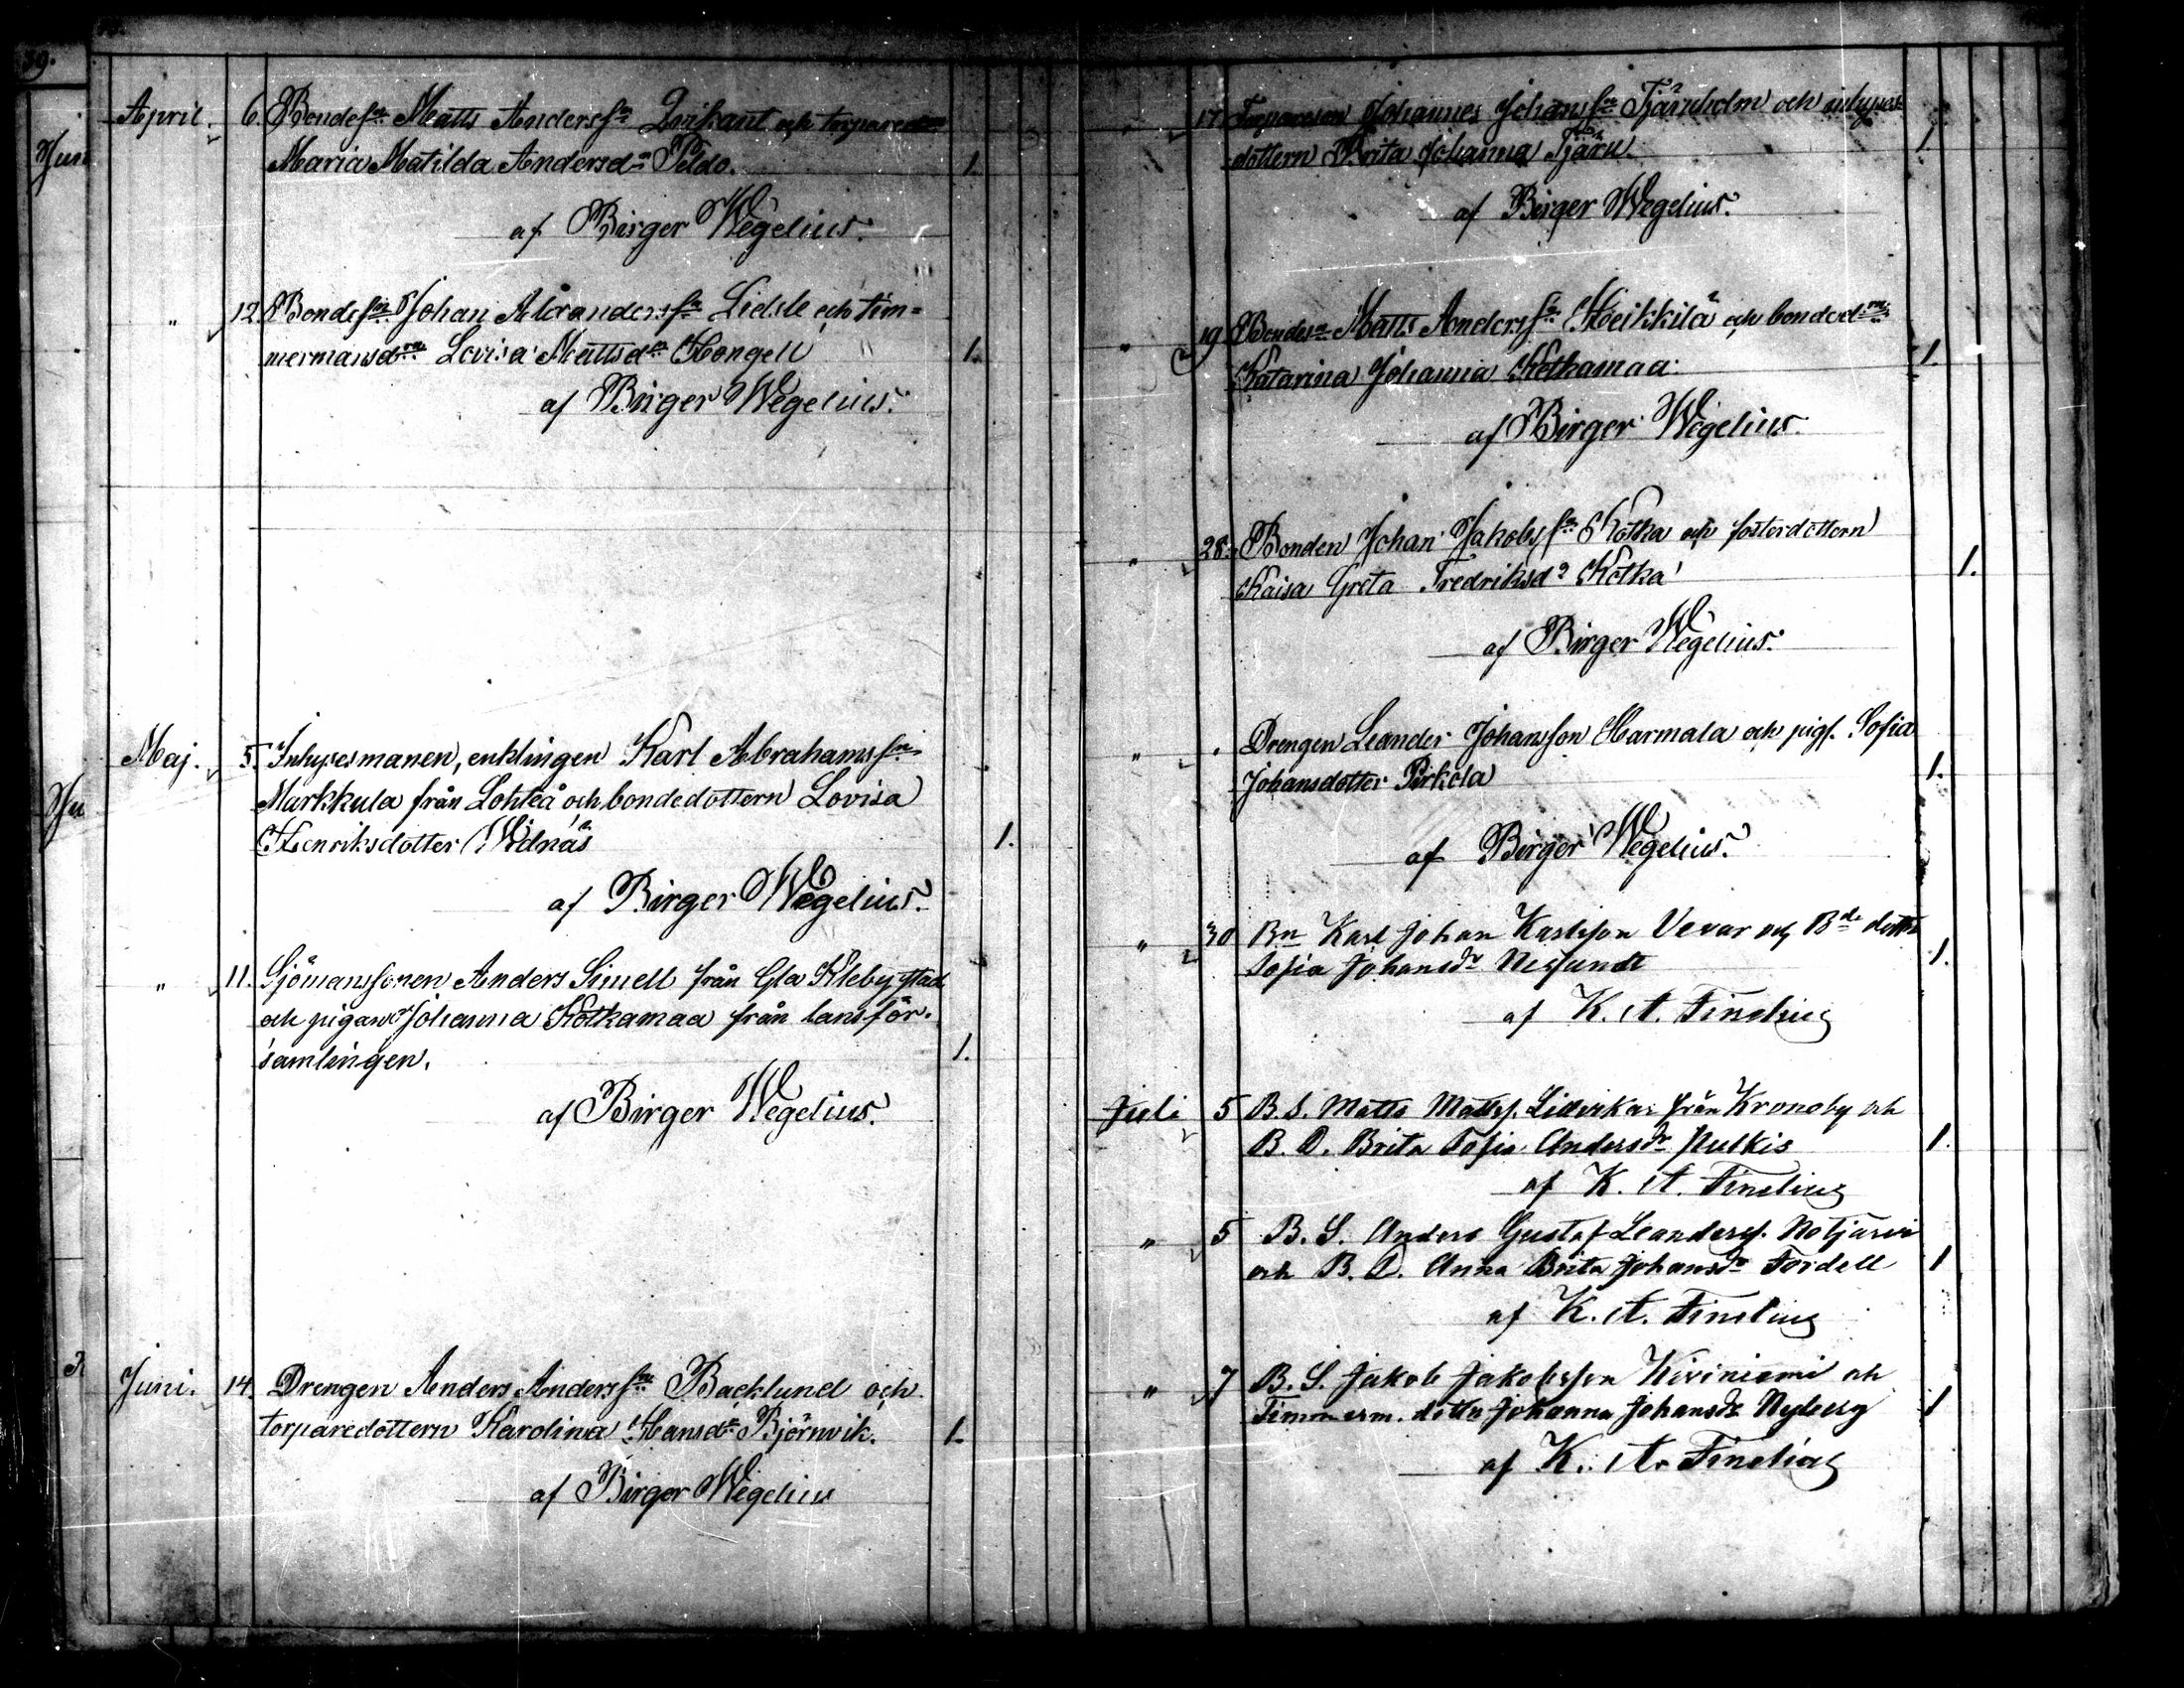 39.
April. 6. Bondesn Matts Anderssn Qvikant och torpared
Maria Matilda Andersdr Peldo. 1.
af Birger Wegelius.
" 12. Bondesn Johan Alexanderssn Lidsle och tim=
mermansdrn Lovisa Mattsdr Hongell 1.
af Birger Wegelius.
Maj. 5. Inhysesmanen, enklingen Karl Abrahamssn
Markkula från Lohteå och bondedottern Lovisa
Henriksdotter Widnäs 1.
af Birger Wegelius.
" 11. Sjömanssonen Anders Simell från Gla Kleby stad
och pigan Johanna Kotkamaa från lansför-
samlingen. 1.
af Birger Wegelius.
Juni. 14. Drengen Anders Anderssn Backlund och
torparedottern Karolina Hansdr Björnvik. 1.
af Birger Wegelius
" 17. Torpareson Johannes Johanssn Tjärnholm och inhyses
dottern Brita Johanna Tjäru. 1
af Birger Wegelius.
" 19 Bondesn Matts Anderssn Heikkilä och bondedrn
Katarina Johanna Kotkamaa. 1.
af Birger Wegelius.
" 28. Bonden Johan Jakobssn Kotka och fosterdottern
Kaisa Greta Fredriksdr Kotka 1.
af Birger Wegelius.
" Drengen Leander Johansson Harmala och pig. Sofia
Johansdotter Pirkola 1.
af Birger Wegelius.
" 30 Bn Karl Johan Karlsson Vevar och Bde dotter
Sofia Johansdr Nessundt 1.
af K. A. Finelius
Juli 5 B. S. Matts Matts. Lillvikar från Kronoby och
B. D. Brita Sofia Andersdr Pulkis 1.
af K. A. Finelius
" 5 B. S. Anders Gustaf Leanders. Notjärvi
och B. D. Anna Brita Johansdr Tordell 1
af K. A. Finelius
" 7 B. S. Jakob Jakobsson Kiviniemi och
Timmerm. dotter Johanna Johansdr Nyberg 1
af K. A. Finelius